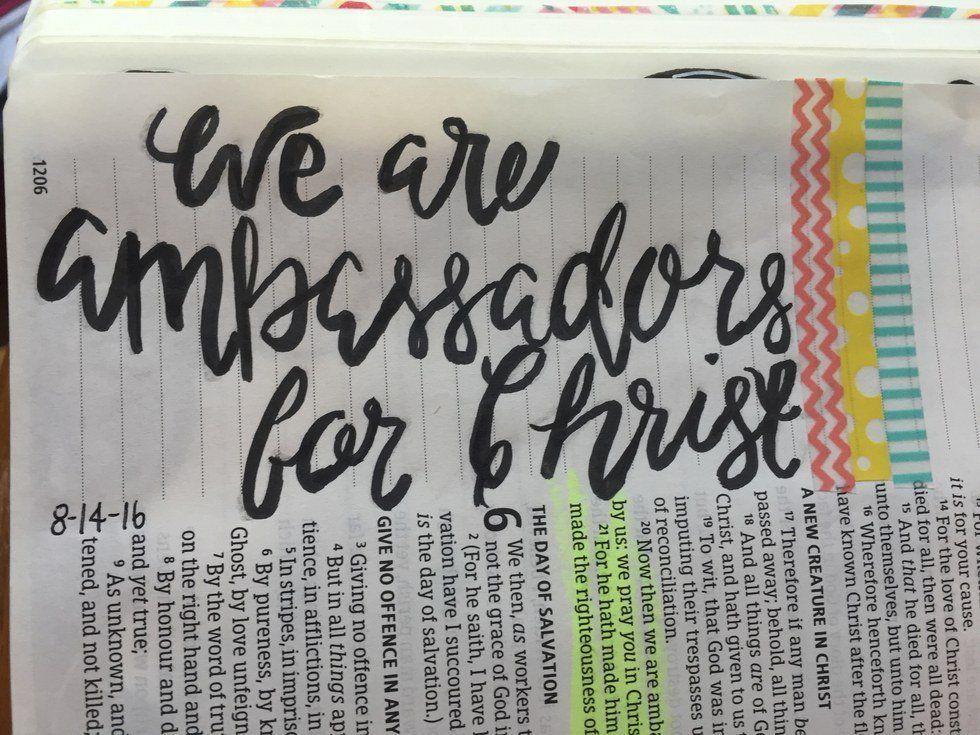 we are
ambassadors
for Christ
1206
8-14-16
it is for your cause.
14 For the love of Christ const
died for all, then were all dead:
15 And that he died for all, t
unto themselves, but unto him
16 Wherefore henceforth kn
have known Christ after the fl
A NEW CREATURE IN CHRIST
17 Therefore if any man be
passed away; behold, all thin
18 And all things are of G
Christ, and hath given to us
19 To wit, that God was i
imputing their trespasses
of reconciliation.
20 Now then we are amba
by us: we pray you in Chris
21 For he hath made him
made the righteousness of
THE DAY OF SALVATION
6 We then, as workers t
not the grace of God i
2 (For he saith, I have
vation have I succoured
is the day of salvation.)
GIVE NO OFFENCE IN ANY
3 Giving no offence i
4 But in all things app
tience, in afflictions, in
5 In stripes, in impris
6 By pureness, by k
Ghost, by love unfeign
7 By the word of tru
on the right hand and
8 By honour and d
and yet true;
9 As unknown, and
tened, and not killed;